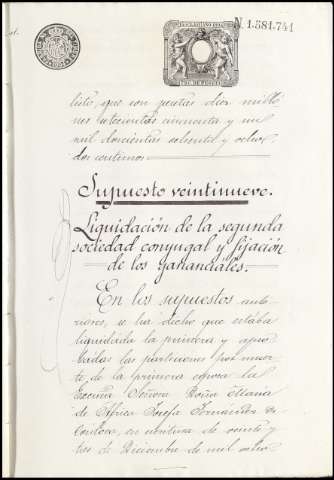 N. 1.581.741
tisto, que son pesetas diez millo-
nes setecientas cincuenta y un
mil doscientas ochenta y ocho
dos centimos
Supuesto veintinueve.
Liquidación de la segunda
sociedad conyugal y fijación
de los gananciales.
En los supuestos ante-
riores, se ha dicho que estaba
liquidada la primera y apro-
badas las particiones por muer-
te de la primera esposa la
Excma Señora Doña Maria
de Africa Josefa Fernandez de
en escritura de veinte y
tres de Diciembre de mil ocho